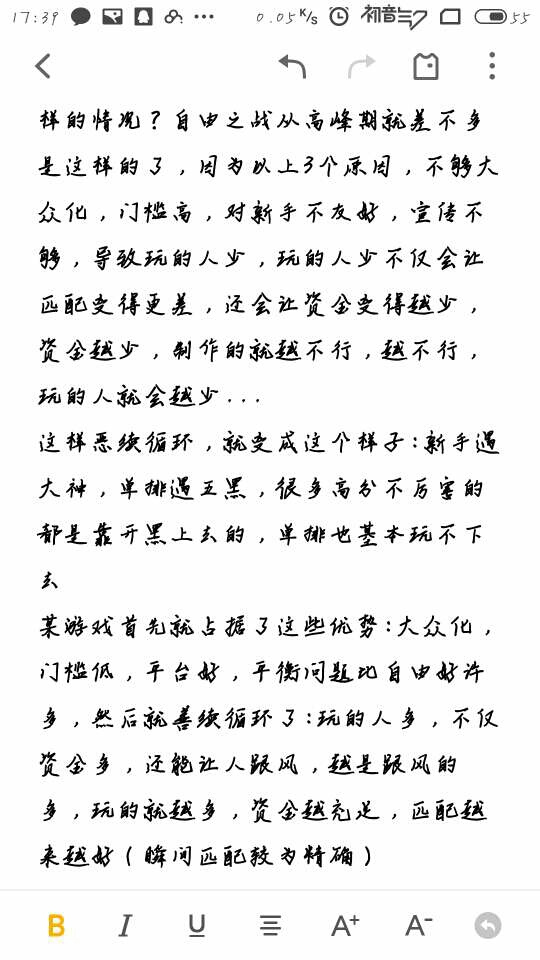 17:39 0.05K/s 初音 55
样的情况？自由之战从高峰期就差不多
是这样的了，因为以上3个原因，不够大
众化，门槛高，对新手不友好，宣传不
够，导致玩的人少，玩的人少不仅会让
匹配变得更差，还会让资金变得越少，
资金越少，制作的就越不行，越不行，
玩的人就会越少...
这样恶续循环，就变成这个样子:新手遇
大神，单排遇五黑，很多高分不厉害的
都是靠开黑上去的，单排也基本玩不下
去
某游戏首先就占据了这些优势:大众化，
门槛低，平台好，平衡问题比自由好许
多，然后就善续循环了:玩的人多，不仅
资金多，还能让人跟风，越是跟风的
多，玩的就越多，资金越充足，匹配越
来越好（瞬间匹配较为精确）
B I U A+ A-